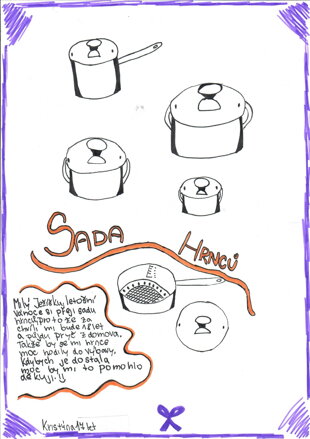 SADA HRNCŮ
Milý Ježíšku, letošní
Vánoce si přeji sadu
hrnců, protože za
chvíli mi bude 18 let
a odejdu pryč z domova.
Takže by se mi hrnce
moc hodily do výbavy.
Kdybych je dostala
moc by mi to pomohlo
děkuji.
Kristýna 17 let